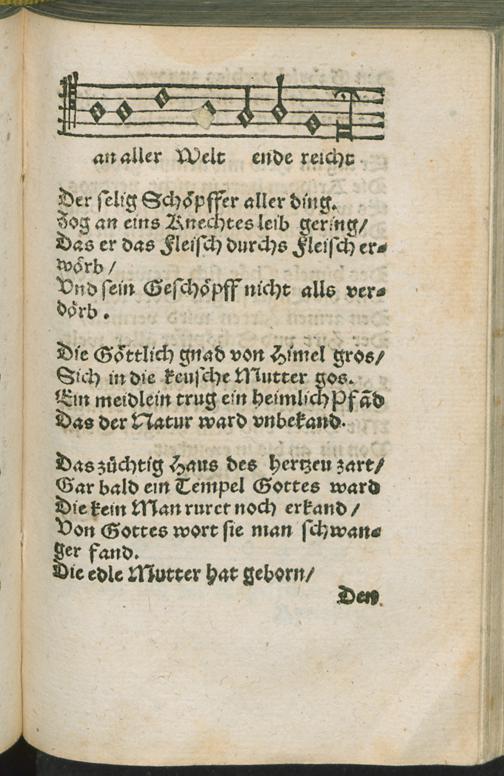 an aller Welt ende reicht.
Der selig Schöpffer aller ding.
Zog an eins Knechtes leib gering/
Das er das Fleisch durchs Fleisch er=
wörb/
Vnd sein Geschöpff nicht alls ver=
dörb.
Die Göttlich gnad von Himel gros/
Sich in die keusche Mutter gos.
Ein meidlein trug ein heimlich Pfãd
Das der Natur ward vnbekand.
Das züchtig Haus des hertzen zart/
Gar bald ein Tempel Gottes ward
Die kein Man ruret noch erkand/
Von Gottes wort sie man schwan=
ger fand.
Die edle Mutter hat geborn/
Den